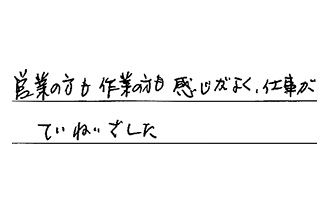 営業の方も作業の方も感じがよく、仕事が
ていねいでした